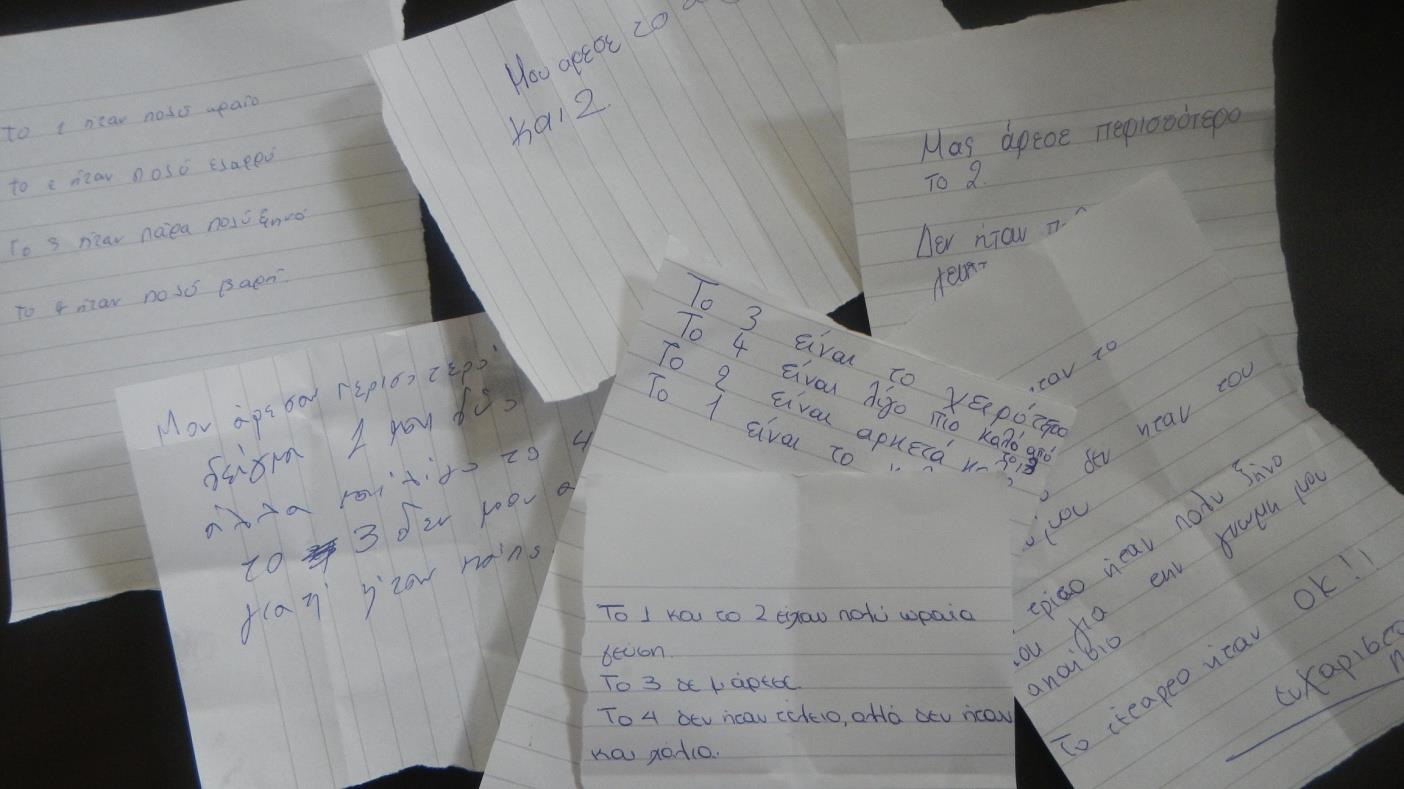 Το 1 ήταν πολύ ωραίο
Το 2 ήταν πολύ ελαφρύ
Το 3 ήταν πάρα πολύ ξινό
Το 4 ήταν πολύ βαρή.
Μου αρεσε το
και 2.
Μας άρεσε περισσότερο
το 2.
Δεν ήταν
Μου άρεσαν περισστερο
δείγμα 1 και δύο
άλλα και λίγο το 4
το 3 δεν μου
γιατί ήταν κάπς
Το 3 είναι το χειρότερο
Το 4 είναι λίγο πιο καλό από το 3
Το 2 είναι αρκετά
Το 1 είναι το
Το 1 και το 2 είχαν πολύ ωραία
γεύση.
Το 3 δε μ'άρεσε.
Το 4 δεν ήταν τέλειο, αλλά δεν ήταν
και χάλια.
το
δεν ηταν του
ήταν πολυ ξηνο
για την γνωμη μου
απαίσιο
Το τέταρτο ήταν ΟΚ!!